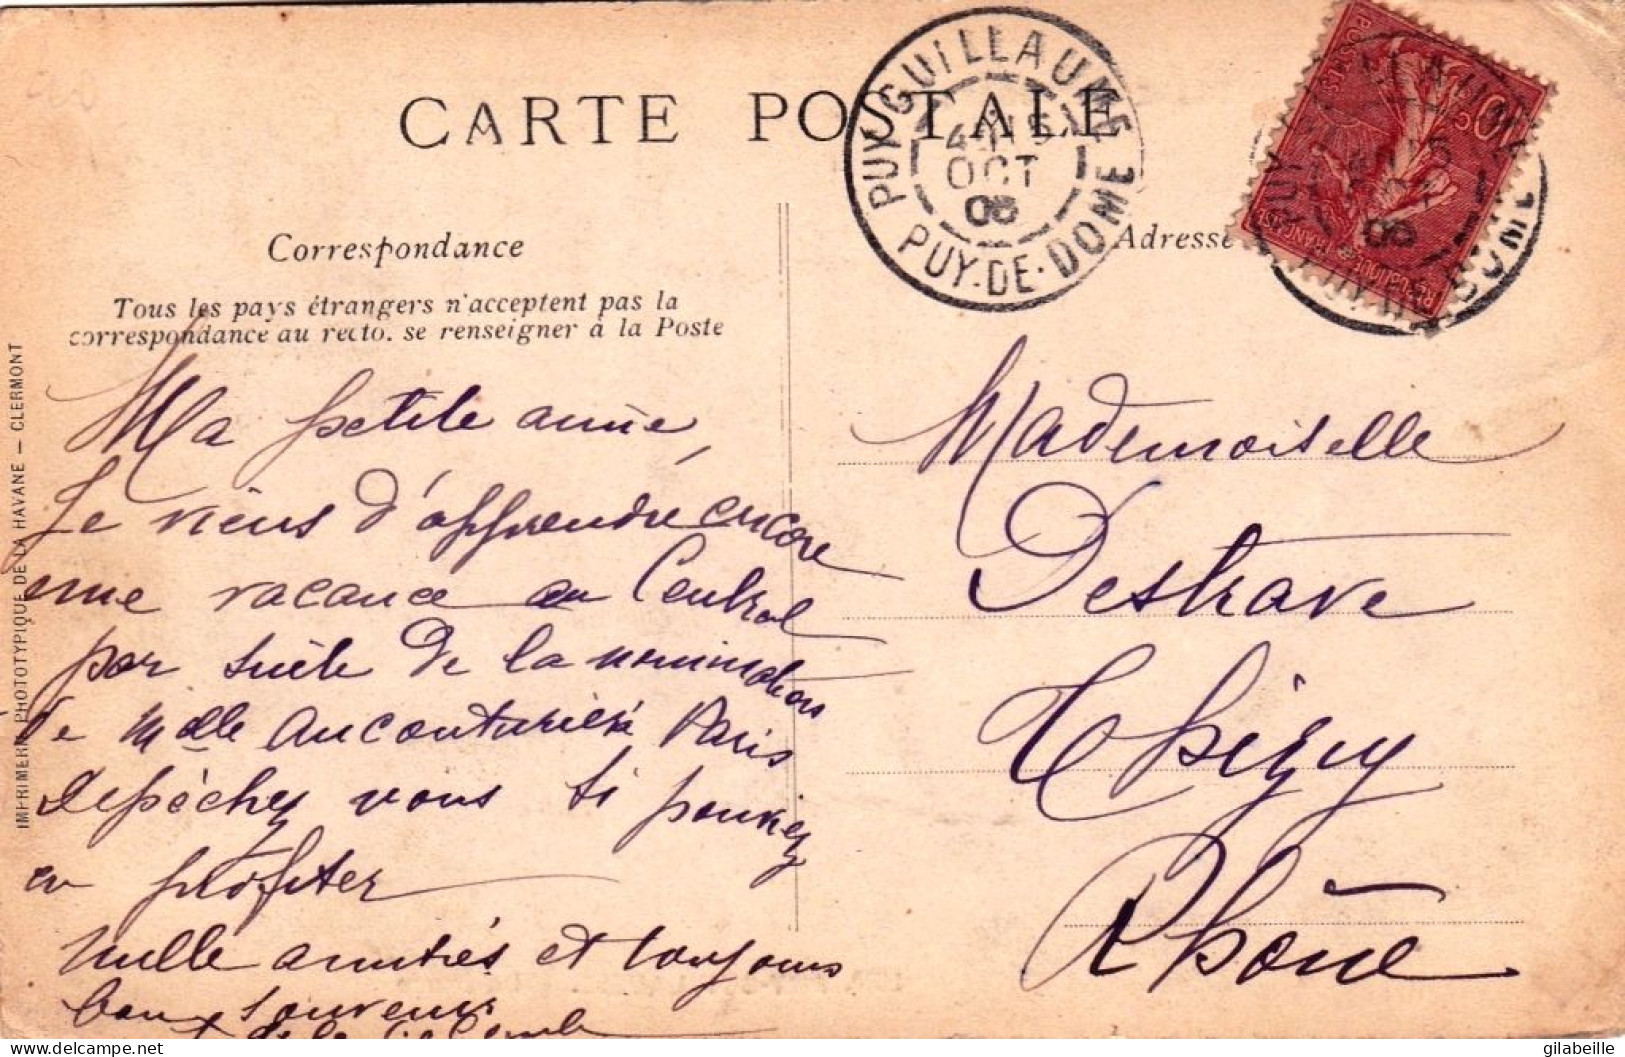 CARTE POSTALE
PUY-GUILLAUME
4 5
OCT
06
PUY-DE-DOME
Correspondance
Adresse
Tous les pays étrangers n'acceptent pas la
correspondance au recto. se renseigner à la Poste
IMPRIMERIE PHOTOTYPIQUE DE LA HAVANE — CLERMONT
Ma petite amie,
Je viens d'apprendre encore
une vacance au Central
par suite de la nomination
de Melle Aucouturier à Paris
depêchez vous si pouviez
en profiter
Mille amitiés et toujours
bon souvenir
de la
Mademoiselle
Destrave
Thizy
Rhône
10c
POSTES
REPUBLIQUE FRANÇAISE
gilabeille
www.delcampe.net